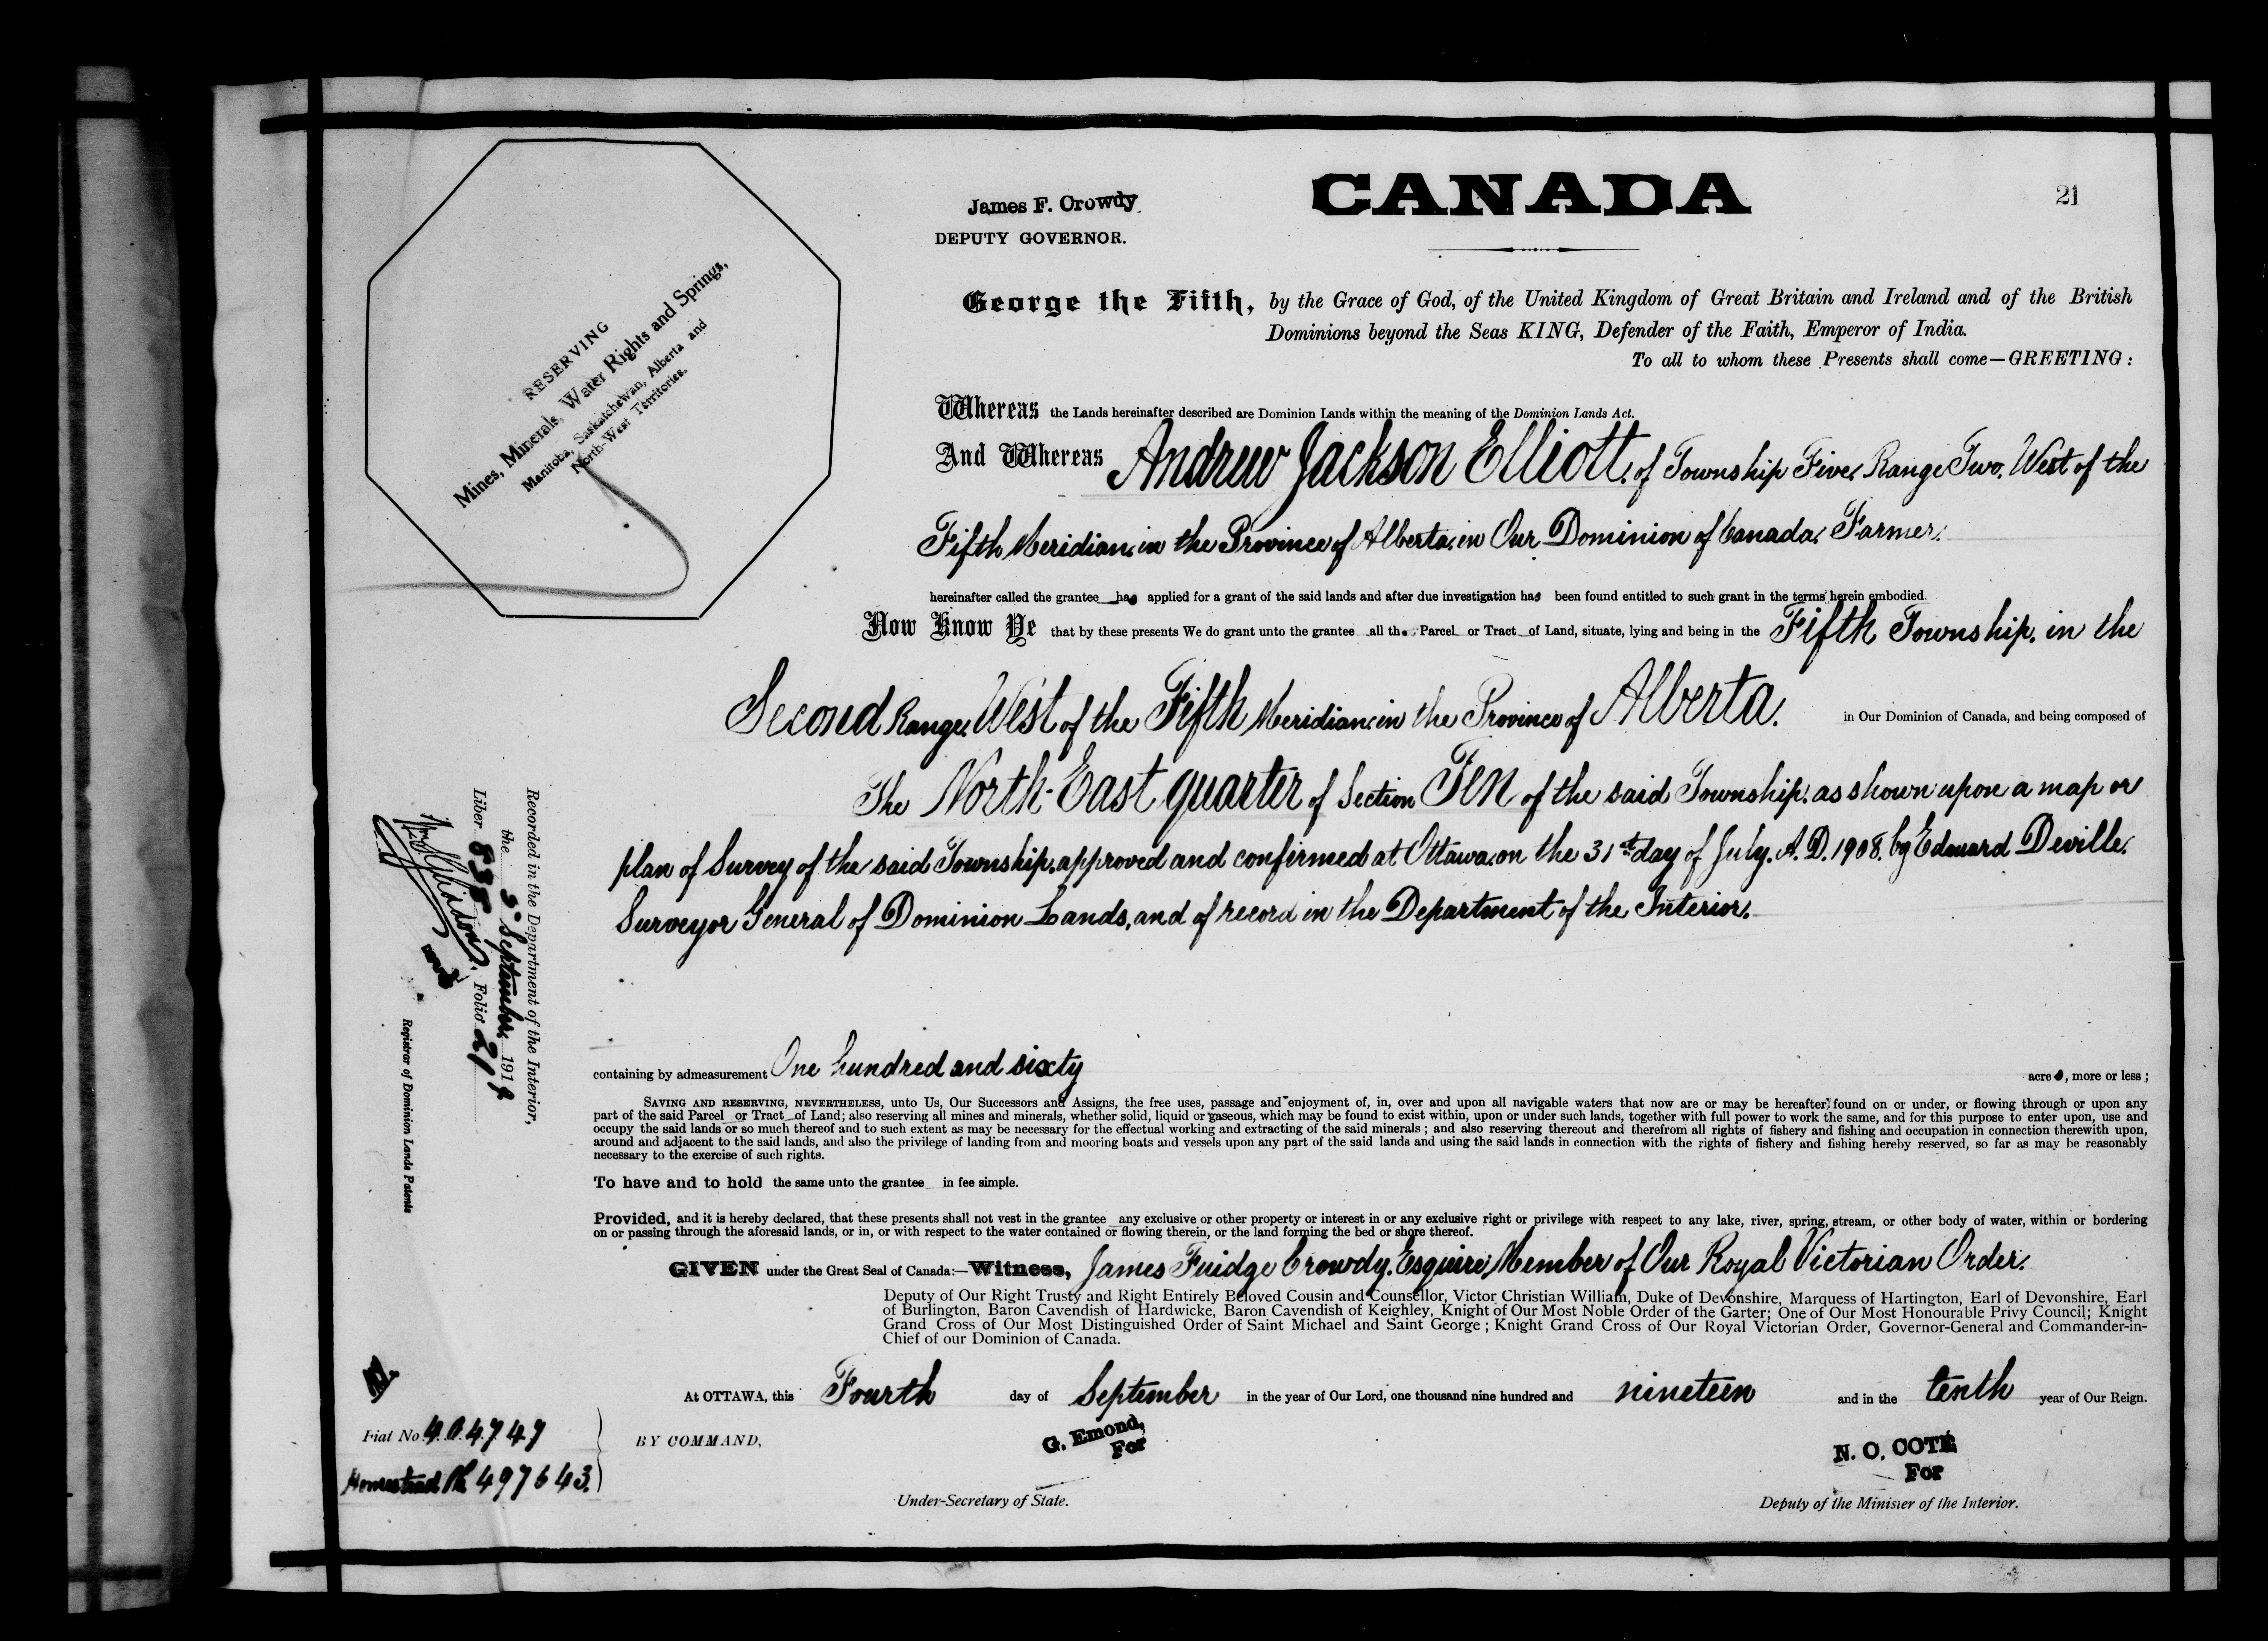 CANADA
21
James F. Crowdy
DEPUTY GOVERNOR.
RESERVING
Mines, Minerals, Water Rights and Springs,
Manitoba, Saskatchewan, Alberta and
North-West Territories.
George the Fifth, by the Grace of God, of the United Kingdom of Great Britain and Ireland and of the British
Dominions beyond the Seas KING, Defender of the Faith, Emperor of India.
To all to whom these Presents shall come—GREETING:
Whereas the Lands hereinafter described are Dominion Lands within the meaning of the Dominion Lands Act.
And Whereas Andrew Jackson Elliott, of Township Five, Range Two, West of the
Fifth Meridian, in the Province of Alberta, in Our Dominion of Canada, Farmer,
hereinafter called the grantee has applied for a grant of the said lands and after due investigation has been found entitled to such grant in the terms herein embodied.
Now Know Ye that by these presents We do grant unto the grantee all the Parcel or Tract of Land, situate, lying and being in the Fifth Township, in the
Second Range, West of the Fifth Meridian, in the Province of Alberta, in Our Dominion of Canada, and being composed of
The North-East quarter of Section Ten of the said Township, as shown upon a map or
plan of Survey of the said Township, approved and confirmed at Ottawa, on the 31st day of July, A.D. 1908, by Edouard Deville,
Surveyor General of Dominion Lands, and of record in the Department of the Interior,
containing by admeasurement One hundred and sixty acres, more or less;
SAVING AND RESERVING, NEVERTHELESS, unto Us, Our Successors and Assigns, the free uses, passage and enjoyment of, in, over and upon all navigable waters that now are or may be hereafter found on or under, or flowing through or upon any
part of the said Parcel or Tract of Land; also reserving all mines and minerals, whether solid, liquid or gaseous, which may be found to exist within, upon or under such lands, together with full power to work the same, and for this purpose to enter upon, use and
occupy the said lands or so much thereof and to such extent as may be necessary for the effectual working and extracting of the said minerals; and also reserving thereout and therefrom all rights of fishery and fishing and occupation in connection therewith upon,
around and adjacent to the said lands, and also the privilege of landing from and mooring boats and vessels upon any part of the said lands and using the said lands in connection with the rights of fishery and fishing hereby reserved, so far as may be reasonably
necessary to the exercise of such rights.
To have and to hold the same unto the grantee in fee simple.
Provided, and it is hereby declared, that these presents shall not vest in the grantee any exclusive or other property or interest in or any exclusive right or privilege with respect to any lake, river, spring, stream, or other body of water, within or bordering
on or passing through the aforesaid lands, or in, or with respect to the water contained or flowing therein, or the land forming the bed or shore thereof.
GIVEN under the Great Seal of Canada:—Witness, James Fuidge Crowdy, Esquire, Member of Our Royal Victorian Order,
Deputy of Our Right Trusty and Right Entirely Beloved Cousin and Counsellor, Victor Christian William, Duke of Devonshire, Marquess of Hartington, Earl of Devonshire, Earl
of Burlington, Baron Cavendish of Hardwicke, Baron Cavendish of Keighley, Knight of Our Most Noble Order of the Garter; One of Our Most Honourable Privy Council; Knight
Grand Cross of Our Most Distinguished Order of Saint Michael and Saint George; Knight Grand Cross of Our Royal Victorian Order, Governor-General and Commander-in-
Chief of our Dominion of Canada.
At OTTAWA, this Fourth day of September in the year of Our Lord, one thousand nine hundred and nineteen and in the tenth year of Our Reign.
BY COMMAND,
G. Emond,
For
Under-Secretary of State.
N. O. COTÉ
For
Deputy of the Minister of the Interior.
Recorded in the Department of the Interior,
the 5 September 1919
Liber 535 Folio 21
Registrar of Dominion Lands Patents
Fiat No. 404747
Homestead 497643